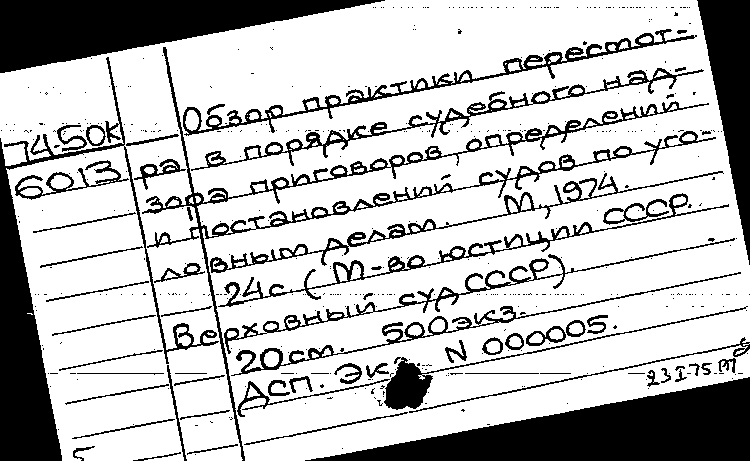 74-50к
6013
Обзор практики пересмот-
ра в порядке судебного над-
зора приговоров, определений
и постановлений судов по уго-
ловным делам. М., 1974.
24с. (М-во юстиции СССР.
Верховный суд СССР).
20см. 500экз.
ДСП. Экз. N 000005.
23 I 75